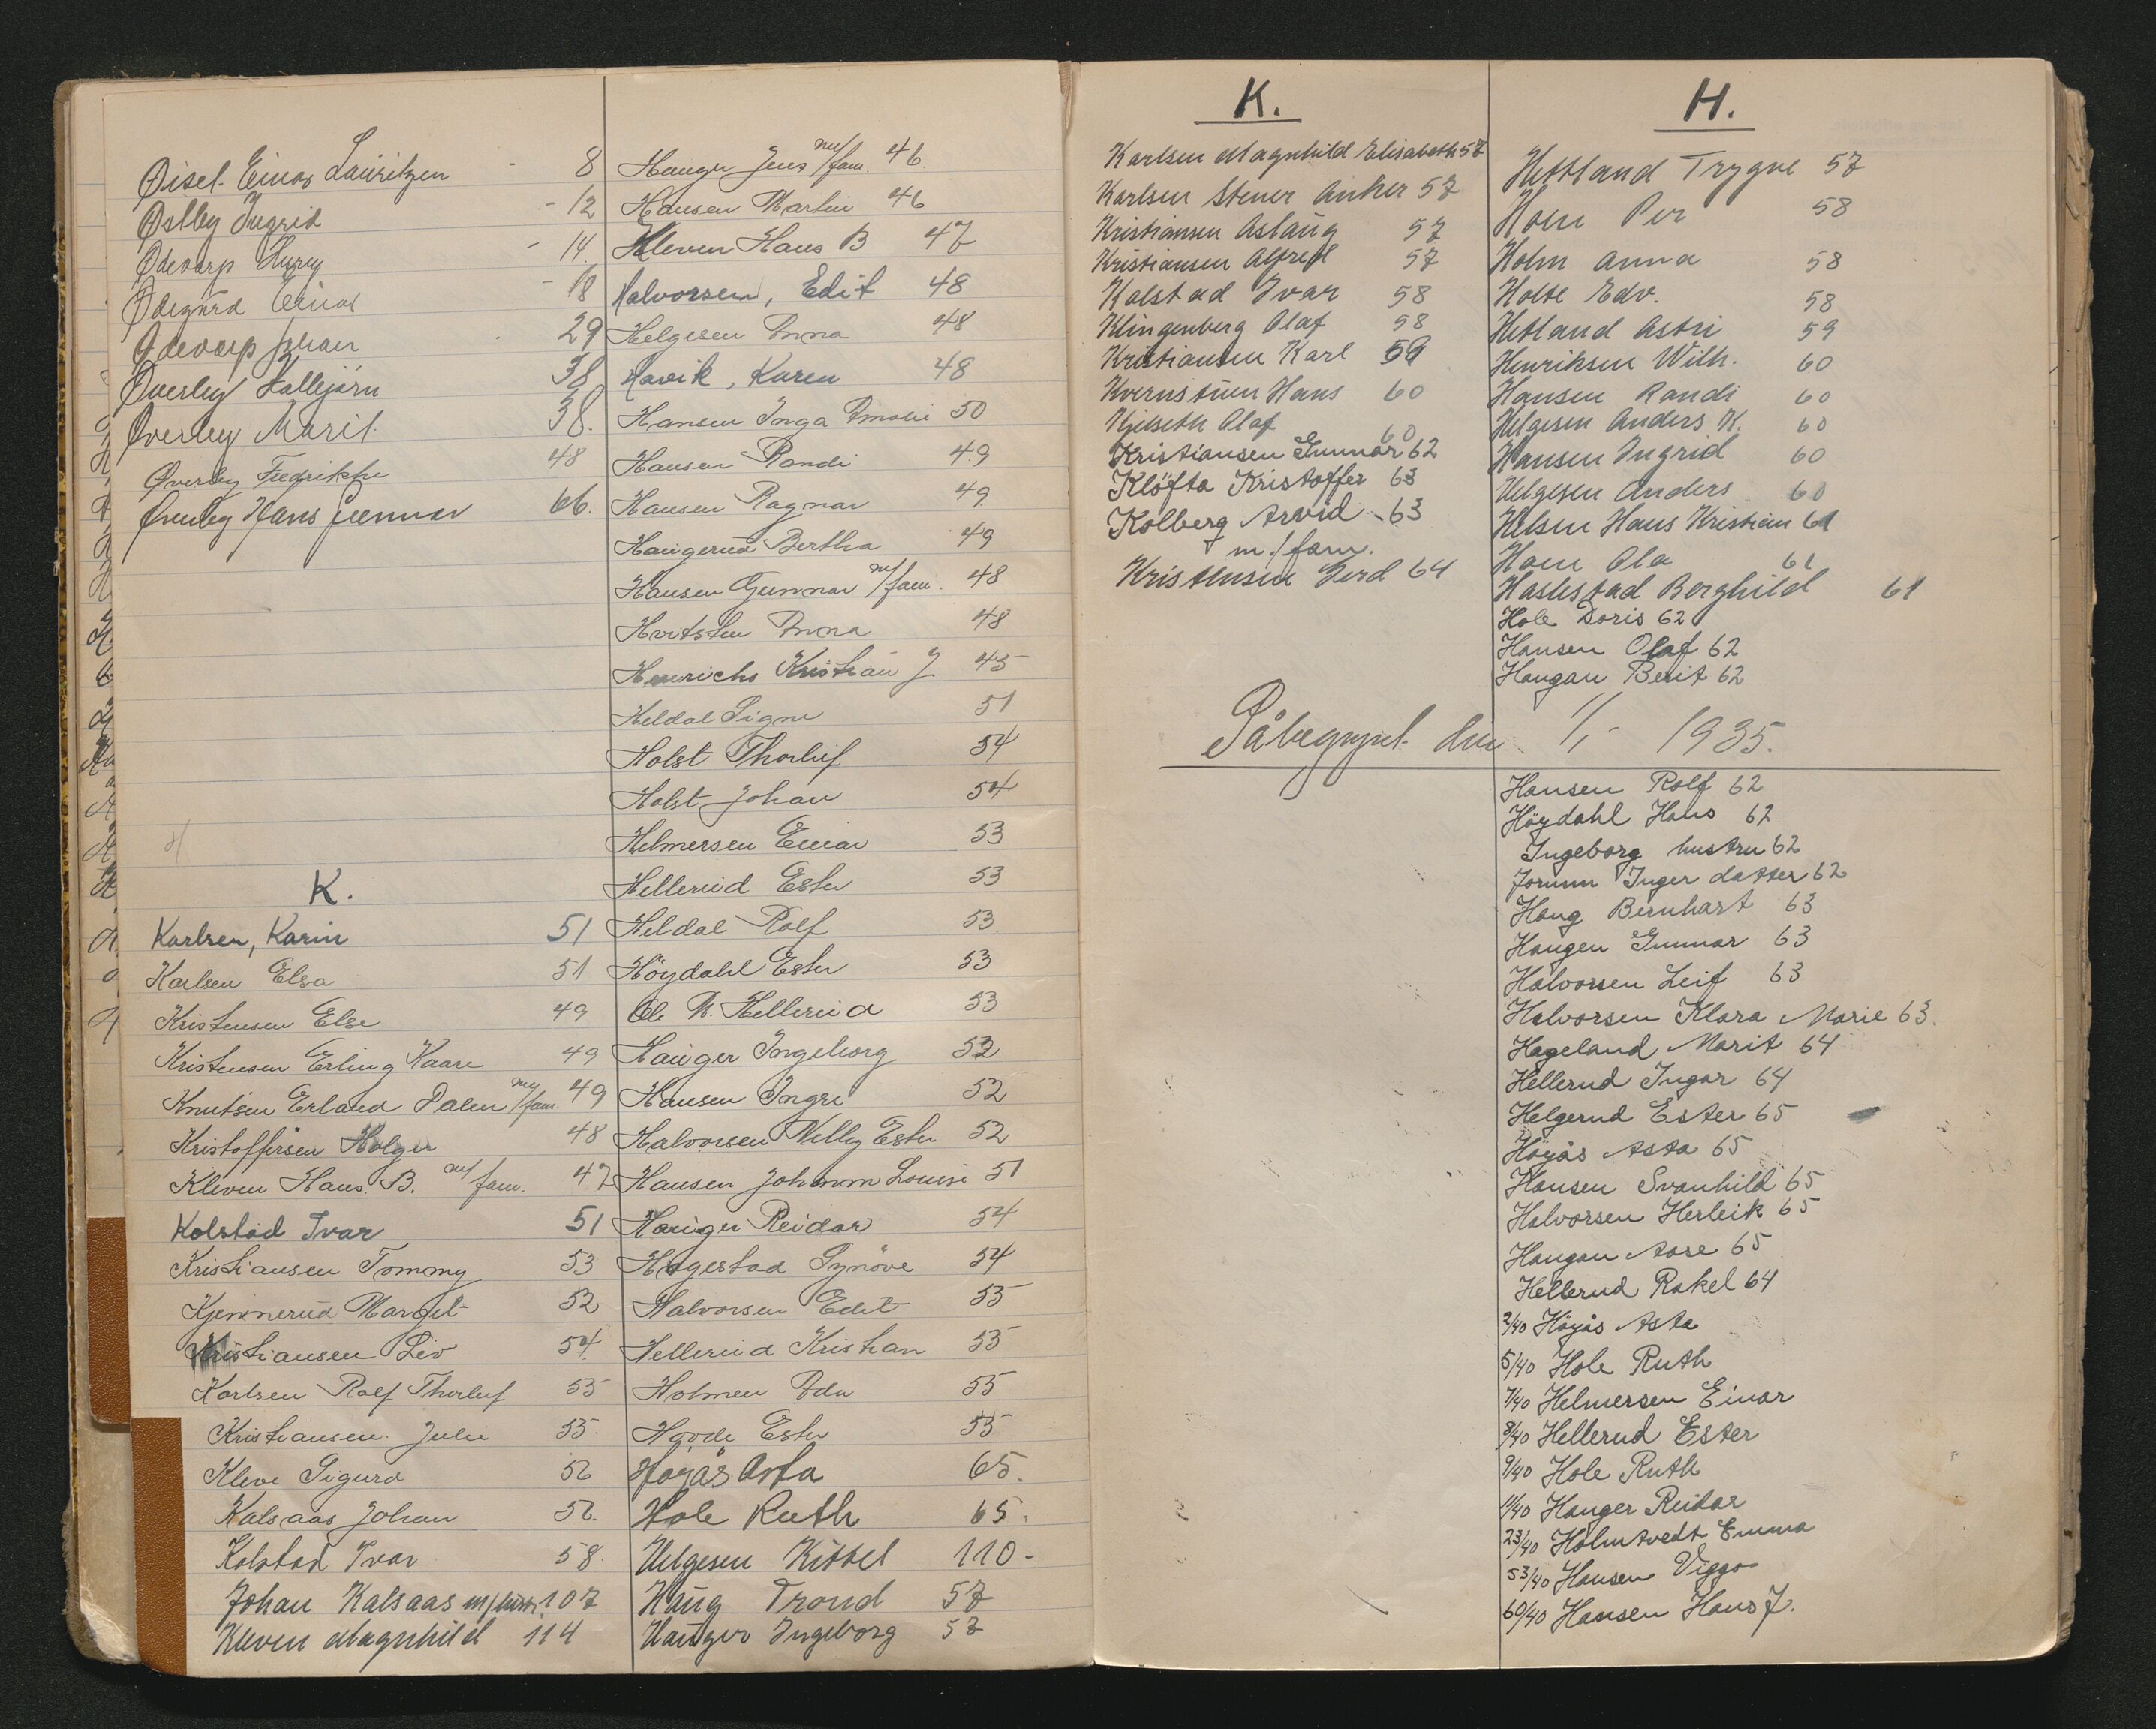 Øisel. Einar Lauritzen - 8
Østby Ingrid - 12
Ødevarp - 14.
Ødegård Einar - 18
Ødevarp Johan - 29
Øverby 38
Øverby Marit. 38.
Øverby Fredrikke 48
Øverby Hans Gunnar 66.
H
K.
Karlsen, Karin 51
Karlsen Elsa 51
Kristensen Else 49
Kristensen Erling Kaare 49
Knutsen Erland Dalen m/fam. 49
Kristoffersen Holger 48
Kleven Hans. B. m/fam. 47
Kolstad Ivar 51
Kristiansen Tommy 53
Kjennerud Margit 52
Kristiansen Liv 54
Karlsen Rolf Thorluf 55
Kristiansen. Julie 55.
Kleve Sigurd 56
Kalsaas Johan 56.
Kolstad Ivar 58.
Johan Kalsaas m/hustr. 107
Kleven Magnhild 114
Hauger Jens m/fam. 46
Hansen Martin 46
Kleven Hans B 47
Halvorsen, Edit 48
Helgesen Anna 48
Havik, Karen 48
Hansen Inga Amalie 50
Hansen Randi 49
Hansen Ragnar 49.
Haugerud Bertha 49
Hansen Gunnar m/fam. 48
Hvitsten Anna 48
Henrichs Kristian J 45
Heldal Signe 51
Holst Thorleif 54
Holst Johan 54
Helmersen Einar 53
Hellerud Ester 53
Heldal Rolf 53.
Höydahl Ester 53
Ole M. Hellerud 53
Hauger Ingeborg 52
Hansen Ingri 52
Halvorsen Nelly Ester 52
Hansen Johanne Louise 51
Hauger Reidar 54
Hagestad Synöve 54
Halvorsen Edit 55
Hellerud Kristian 55
Holmen Ada 55
Hovde Ester 55
Høyås Asta 65.
Hole Ruth 65.
Helgesen Kittel 110-
Haug Trond 57
Hauger Ingeborg 57
K.
Karlsen Magnhild Elisabeth 57
Karlsen Stener Anker 57
Kristiansen Aslaug 57
Kristiansen Alfred 57
Kolstad Ivar 58
Klingenberg Olaf 58
Kristiansen Karl 59
Kvernstuen Hans 60
Kjelseth Olaf 60
Kristiansen Gunnar 62
Klöfta Kristoffer 63
Kolberg Arvid - 63
m./fam.
Kristensen Gerd 64
H.
Hettland Trygve 57
Hoen Per 58
Holm Anna 58
Holte Edv. 58
Hetland Astri 59
Henriksen Wilh. 60
Hansen Randi 60
Helgesen Anders K. 60
Hansen Ingrid 60
Helgesen Anders 60
Helsen Hans Kristian 61
Hoen Ola 61
Haslestad Borghild 61
Hole Doris 62
Hansen Olaf 62
Haugan Berit 62
Påbegynt den 1/1- 1935.
Hansen Rolf 62
Höydahl Hans 62
Ingeborg hustru 62
Jorunn Inger datter 62
Haug Bernhart 63
Haugen Gunnar 63
Halvorsen Leif 63
Halvorsen Klara Marie 63.
Hageland Marit 64
Hellerud Ingar 64
Helgerud Ester 65
Höyås Asta 65
Hansen Svanhild 65
Halvorsen Herleik 65
Haugan Aase 65
Hellerud Rakel 64
2/40 Höyås Asta
5/40 Hole Ruth
7/40 Helmersen Einar
8/40 Hellerud Ester
9/40 Hole Ruth
11/40 Hauger Reidar
23/40 Holmtvedt Emma
53/40 Hansen Viggo
60/40 Hansen Hans J.